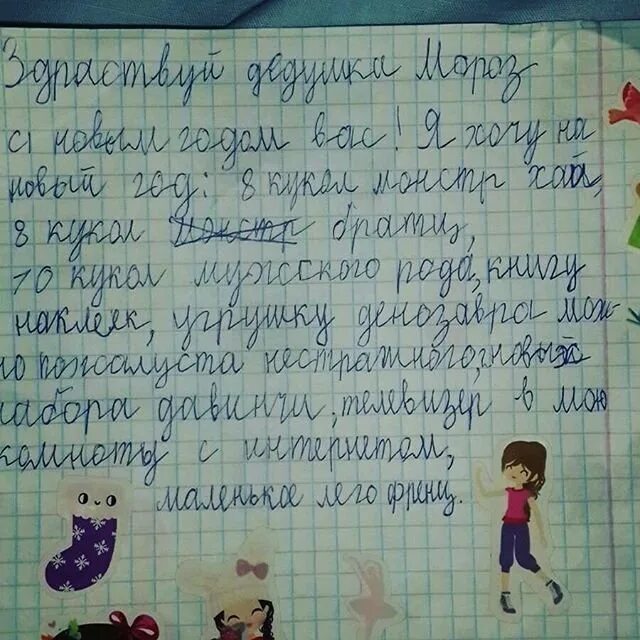 Здраствуй дедушка Мороз
с новым годом вас! Я хочу на
новый год: 8 кукол монстр хай,
8 кукол монстр братц,
10 кукол мужского рода, книгу
наклеяк, угрушку денозавра мож-
но пожалуста нестрашного, новый
набора давинчи, телевизер в мою
комноты с интернетом,
маленькое лего френц.